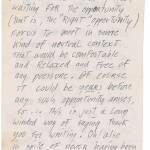 waiting for the opportunity
(that is, the "Right" opportunity)
for us to meet in some
kind of neutral context
that would be comfortable
and Relaxed and free of
any pressure. Of course
it could be years before
any such opportunity arises,
so -- this is just a long
winded way of saying thank
you for writing. Oh! also
in spite of never having been